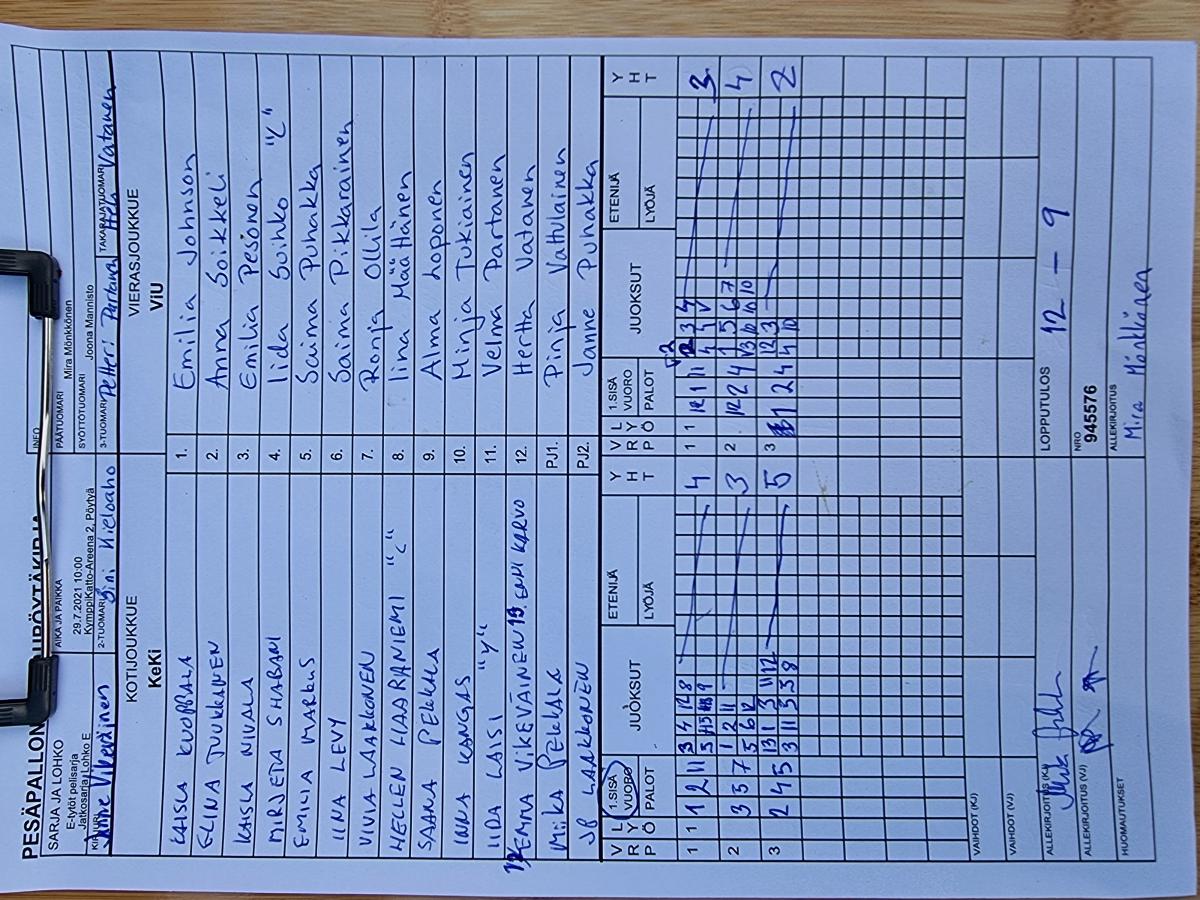 PESÄPALLON
SARJA JA LOHKO
E-tytöt pelisarja
Jatkosarja Lohko E
KIRJURI
AIKA JA PAIKKA
29.7.2021 10:00
KymppiKatto-Areena 2, Pöytyä
2-TUOMARI Sini Kieloaho
INFO
PÄÄTUOMARI Mira Mönkkönen
SYÖTTÖTUOMARI Joona Mannisto
3-TUOMARI Petteri Partanen
TAKARAJATUOMARI Vatanen
KOTIJOUKKUE
KeKi
VIERASJOUKKUE
ViU
KAISLA KUOPPALA 1. Emilia Johnson
ELINA JUUKKANEN 2. Anna Soikkeli
KAISLA NIVALA 3. Emilia Pesonen
MIRJETA SHABANI 4. Iida Suihko "C"
EMILIA MARKUS 5. Saima Puhakka
IINA LEVY 6. Saima Pikkarainen
VIIVIA LAAKKONEN 7. Ronja Ollila
HELLEN LIASRANIEMI "C" 8. Iina Määttänen
SAANA PEKKALA 9. Alma Loponen
INNA KANGAS 10. Minja Tukiainen
IIDA LAISI "Y" 11. Velma Partanen
12. EMMA VIKEVÄINEN 13. ENNI KARVO 12. Hertta Vatanen
MIIKA PEKKALA PJ1. Pinja Valtulainen
JP LAAKKONEN PJ2. Janne Puhakka
V R P
L Y Ö
1.SISÄ VUORO
PALOT
JUOKSUT
ETENIJÄ
LYÖJÄ
Y H T
V R P
L Y Ö
1.SISÄ VUORO
PALOT
JUOKSUT
ETENIJÄ
LYÖJÄ
Y H T
1 1 1 2 11 4
2 3 3 7 3
3 2 4 5 5
1 1 12 1 11 3
2 12 2 4 4
3 1 2 4 2
VAIHDOT (KJ)
VAIHDOT (VJ)
ALLEKIRJOITUS (KJ)
ALLEKIRJOITUS (VJ)
HUOMAUTUKSET
LOPPUTULOS 12 - 9
NRO
945576
ALLEKIRJOITUS
Mira Mönkkönen